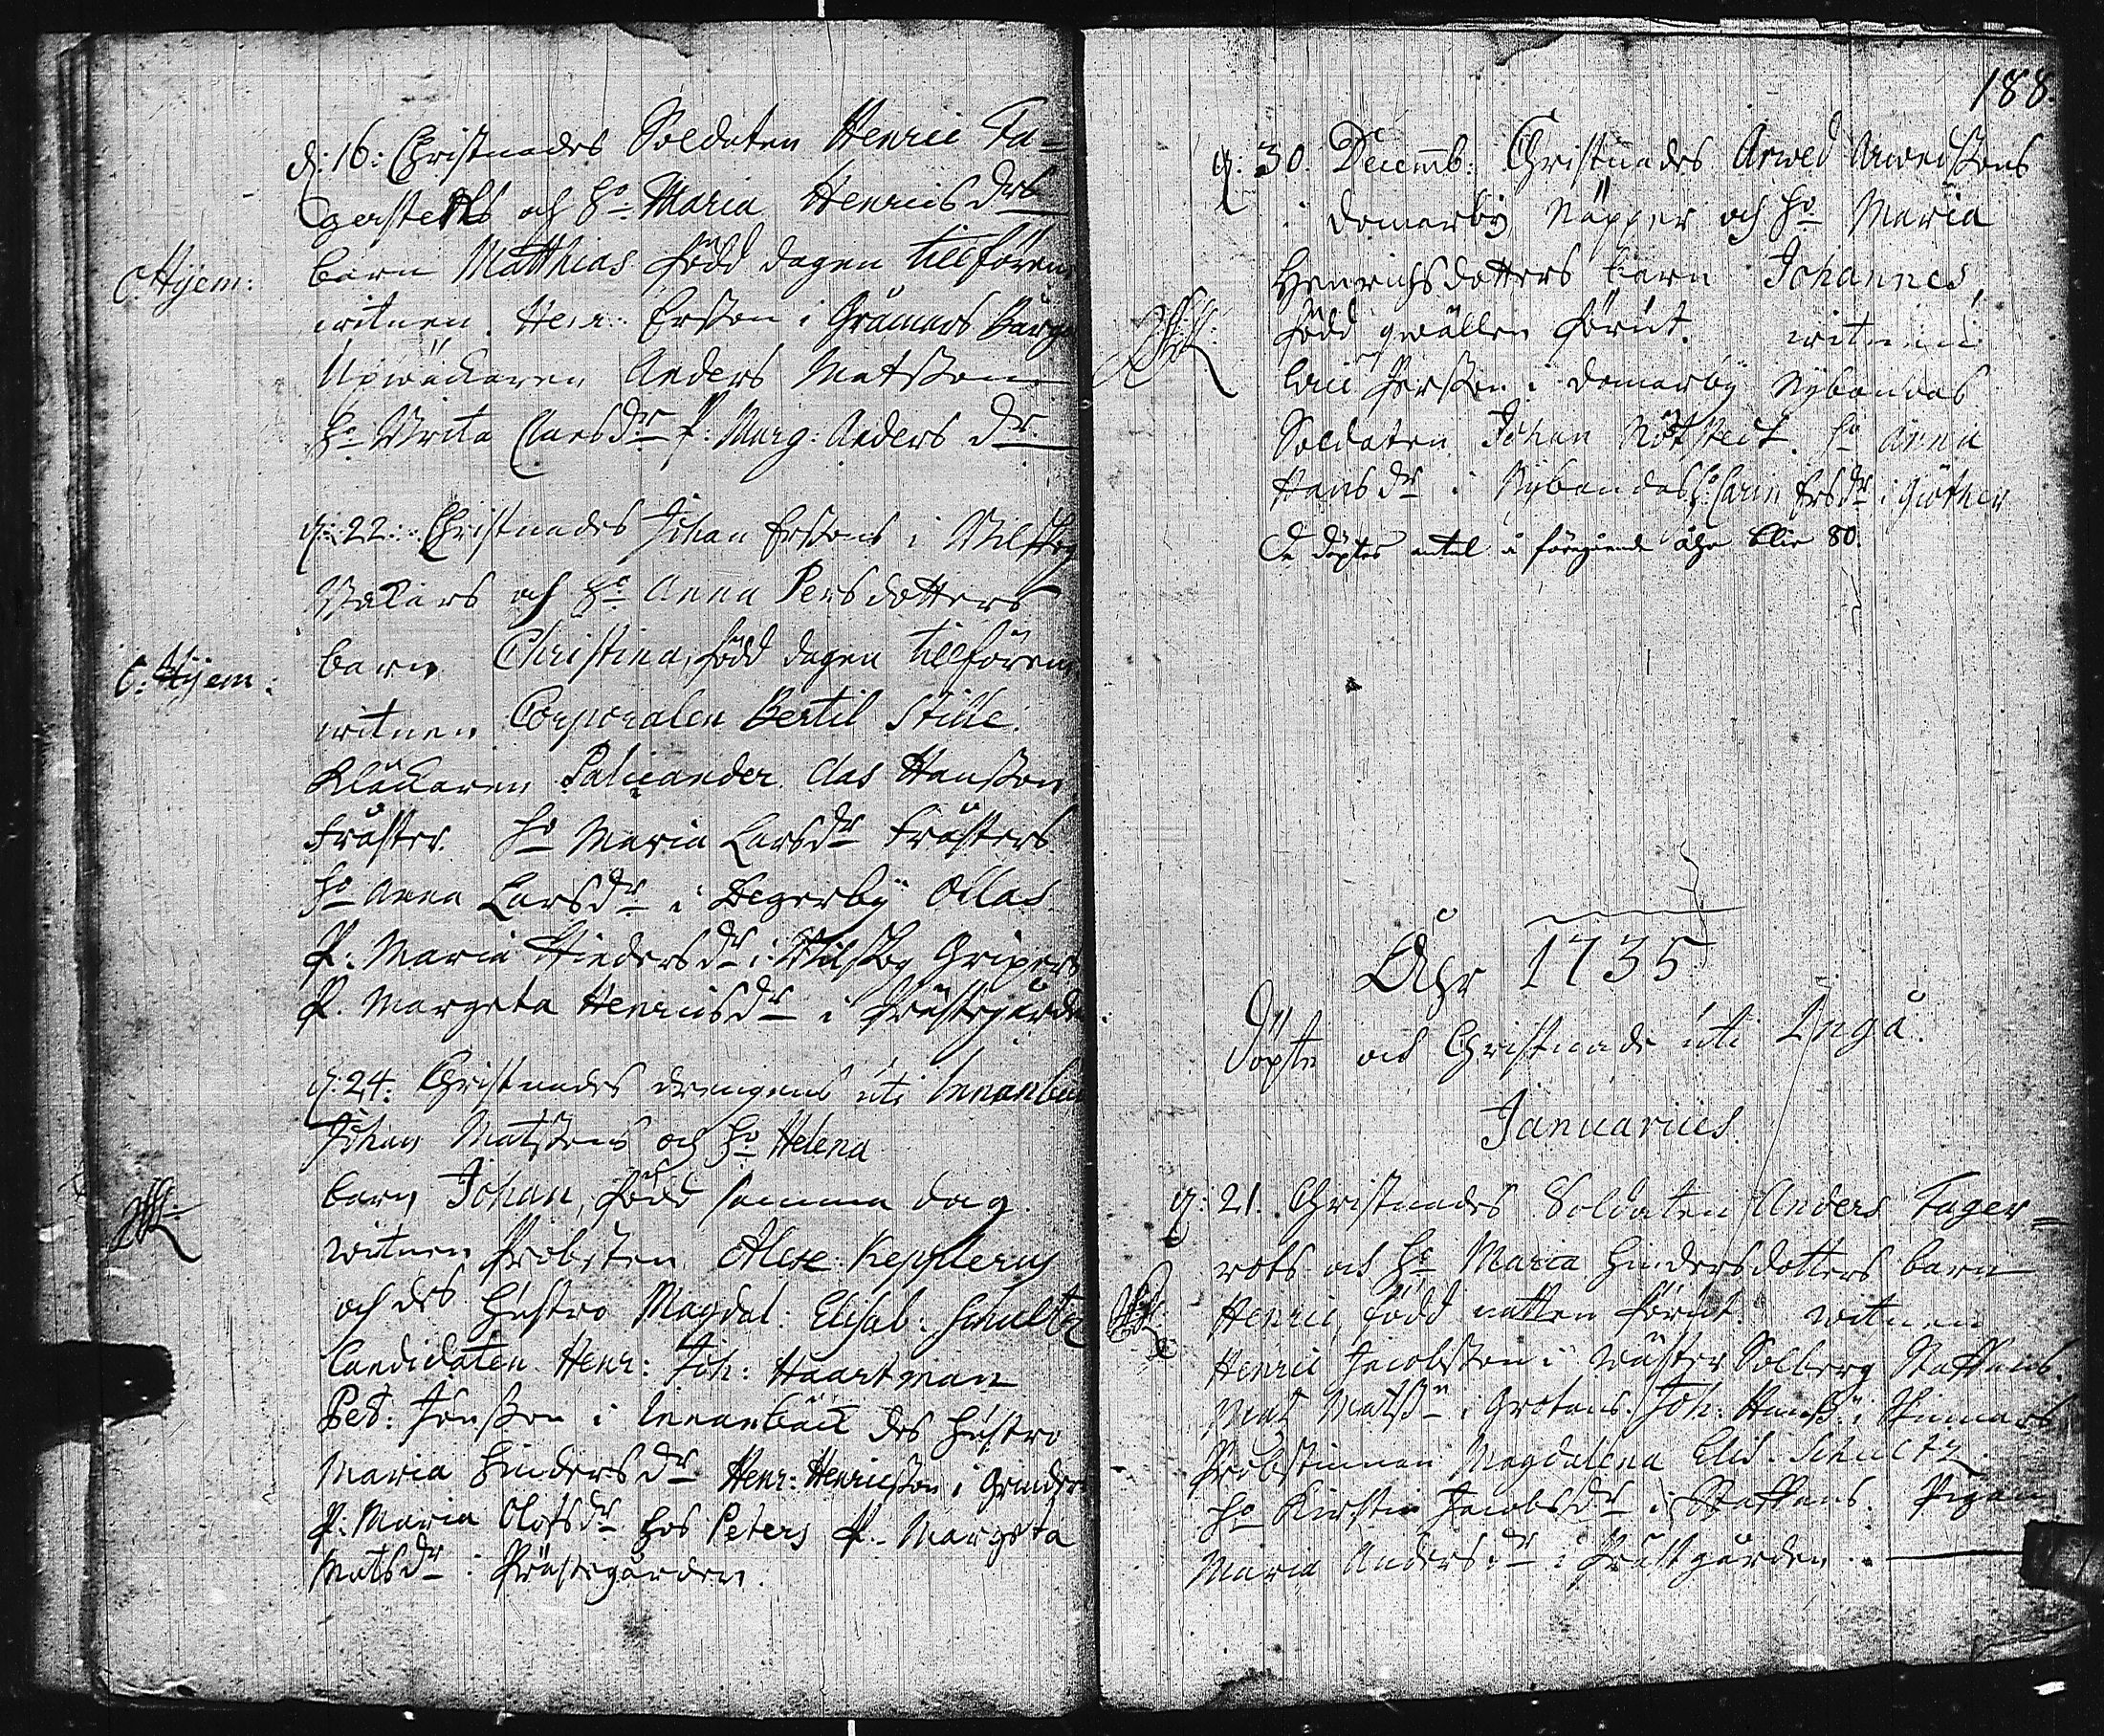 d: 16: Christnades Soldaten Henric Fa=
gerstedts och h:o Maria Henricsdrs
C. Hyem:
barn Matthias född dagen tillförene
witnen. Henr: Ersson i Gråmars
Upwäckaren Anders Matsson
h:o Brita Clasdr P: Marg: Andersdr
d: 22: Christnades Johan Erssons i
och h:o Anna Persdotters
C: Hyem:
barn Christina, född dagen tillförene
witnen Corporalen Bertil Stille.
Klåckaren Palicander Clas Hansson
Fräster. h:o Maria Larsdr Frästers
h:o Anna Larsdr i Degerby Ollas
P: Maria Hindersdr i Gripers
P. Margeta Henricsdr i Prästegården
d. 24. Christnades drengens uti Innanbäck
Johan Matssons och h:o Helena
barn Johan, född samma dag.
witnen Probsten Alexr Kepplerus
och des hustro Magdal: Elisab: Schultz
Candidaten Henr: Joh: Haartman
Pet: Jönsson i Innanbäck des hustro
Maria Hindersdr Henr: Henricsson i Grinders
P: Maria Olofsdr hos Peters P. Margeta
Matsdr i Prästegården.
188.
d: 30. Decemb: Christnades Arwed Arwedssons
i Domarby Näpper och h:o Maria
Henrichsdotters barn Johannes,
född qwällen förut. witnen:
Eric Persson i Domarby Nybondas
Soldaten Johan Nötstedt. h:o Anna
Hansdr i Nybondas h:o Carin Ersdr i
De döptes antal i föregående åhr blir 80.
Åhr 1735
Döpte och Christnade uti Ingå.
Januarius.
d: 21. Christnades Soldaten Anders Fager=
rots och h:o Maria Hindersdotters barn
Henric, född natten förut. witnen
Henric Jacobsson i Wäster Solberg Staffans.
Mat Matss:n i Grotens. Joh: Hanss: i
Probstinnan Magdalena Elis. Schultz.
h:o Kirstin Jacobsdr i Staffans. Pigan
Maria Andersdr i Prästgården.